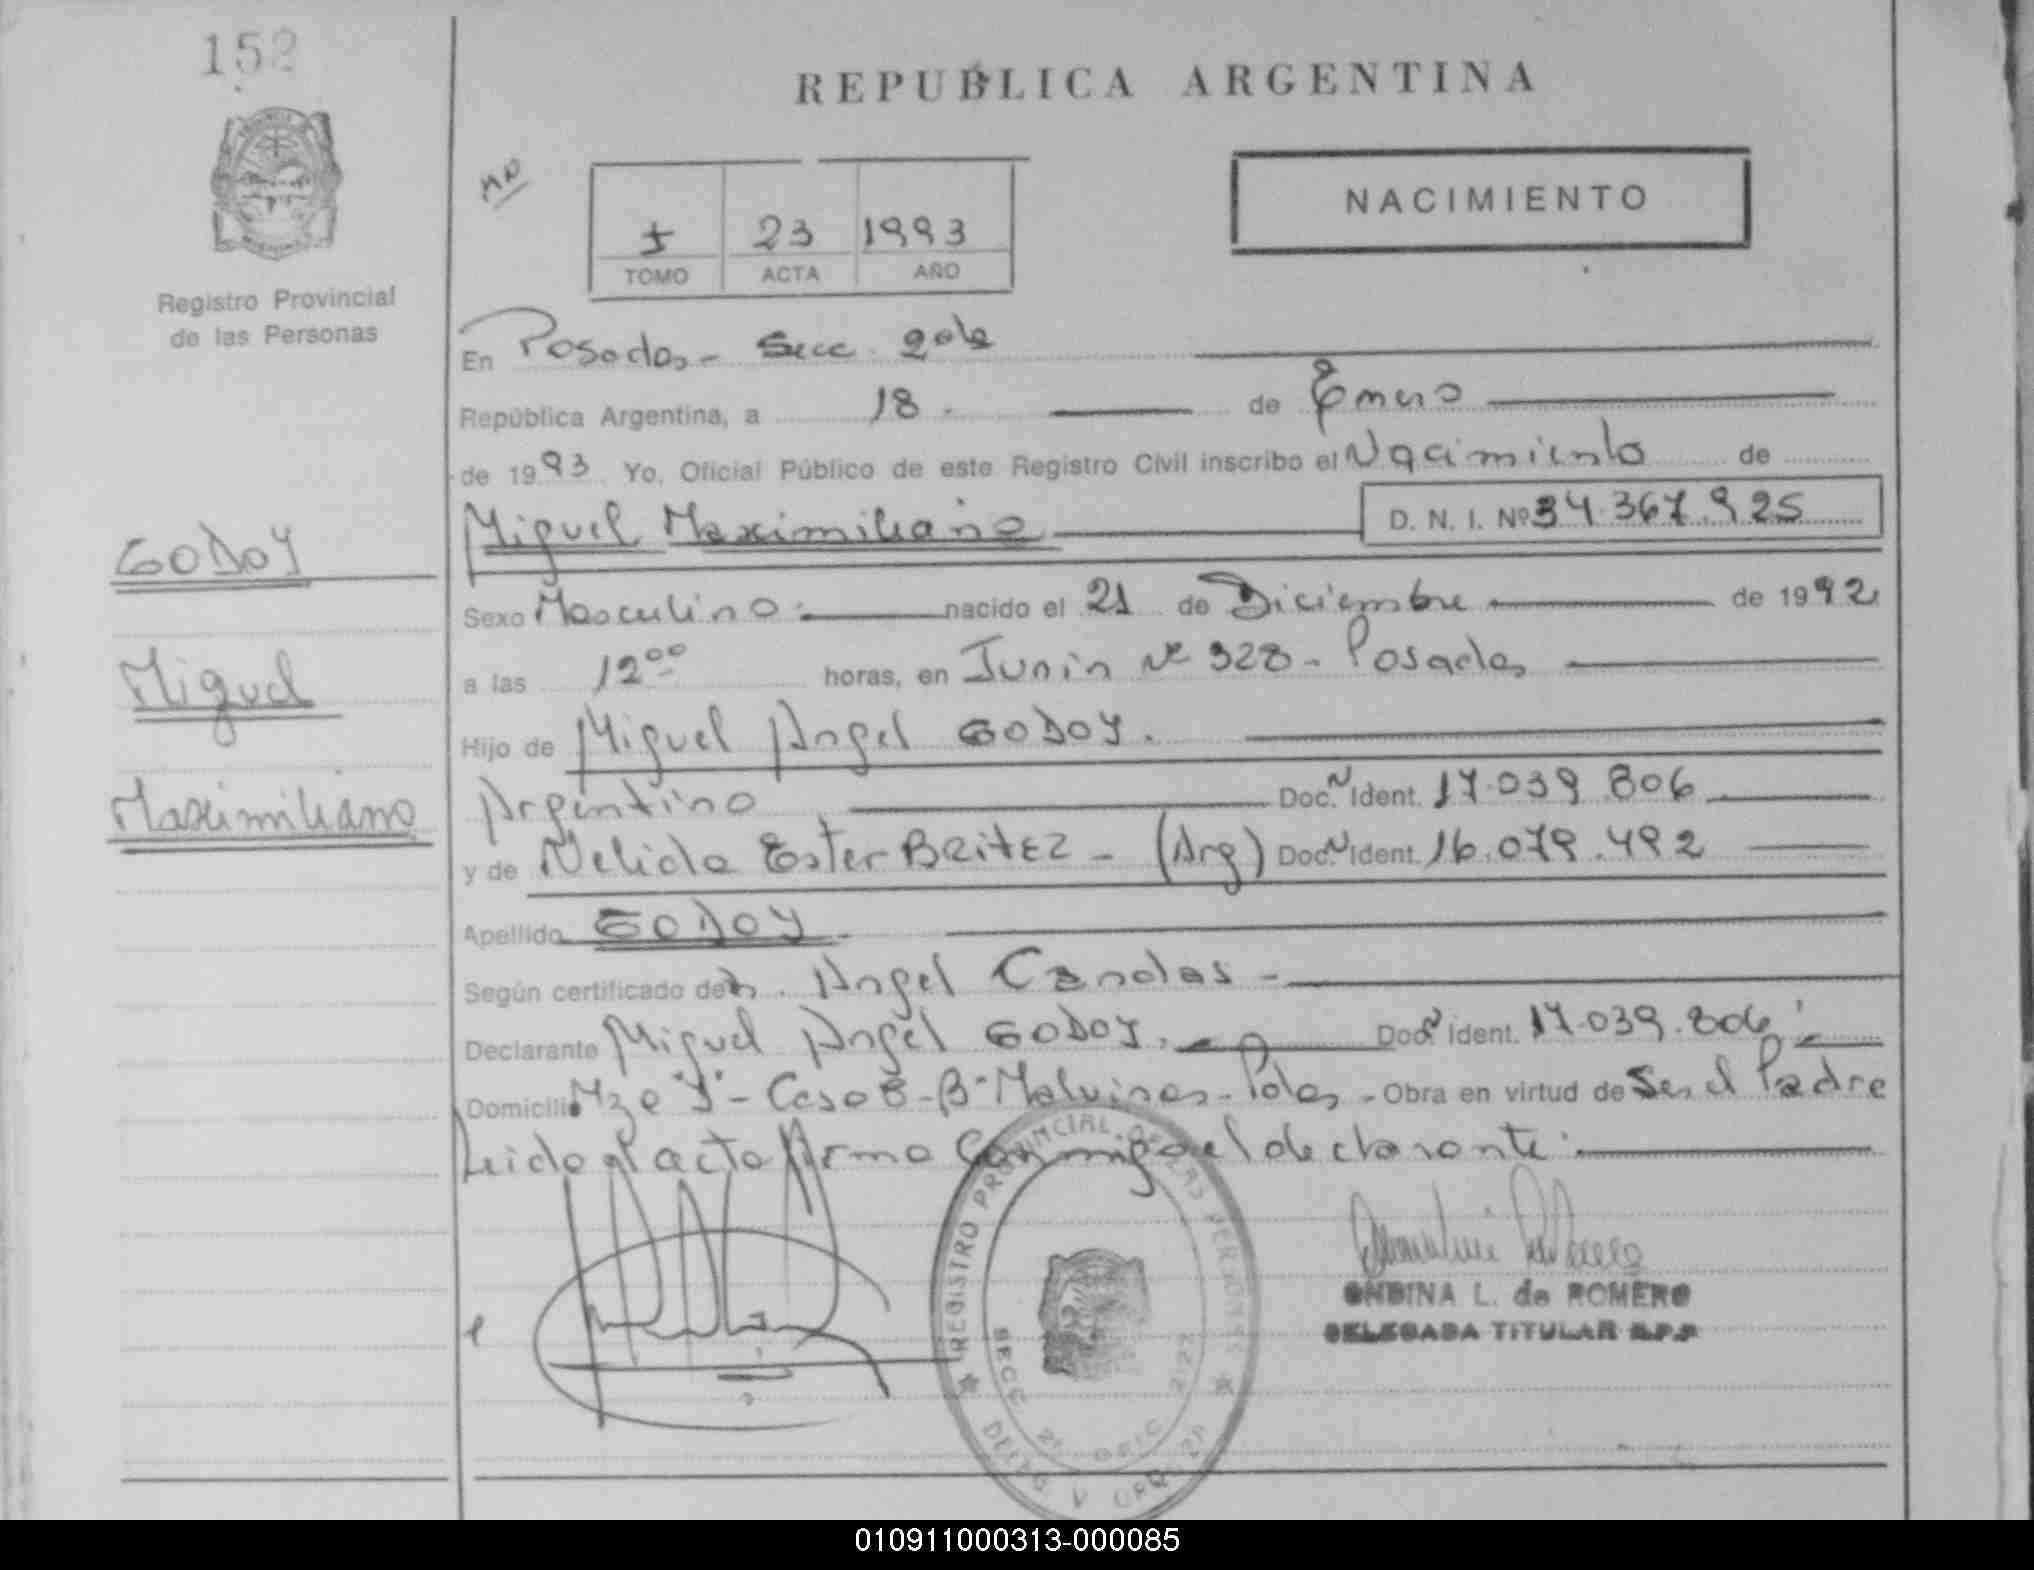 152
REPUBLICA ARGENTINA
NACIMIENTO
I 23 1993
TOMO ACTA AÑO
Registro Provincial
de las Personas
En Posadas - Secc. 2da
República Argentina, a 18. de Enero
de 1993. Yo, Oficial Público de este Registro Civil inscribo el Nacimiento de
Miguel Maximiliano D. N. I. Nº 34.367.925
GODOY
Miguel
Maximiliano
Sexo Masculino. nacido el 21 de Diciembre de 1992
a las 12 00 horas, en Junin Nº 328 - Posadas
Hijo de Miguel Angel GODOY.
Argentino Doc. N Ident. 17.039.806
y de Nelida Ester BRITEZ - (Arg) Doc. N Ident. 16.079.492
Apellido GODOY
Según certificado de Dr. Angel Candas -
Declarante Miguel Angel GODOY. Doc. N Ident. 17.039.806
Domicilio Mza "J" - Casa 8 - Bº Malvinas - Pdas - Obra en virtud de Ser el Padre
Leida el acta firma conmigo el declarante.
REGISTRO PROVINCIAL DE LAS PERSONAS
SECC 2ª
ONDINA L. de ROMERO
DELEGADA TITULAR R.P.P
010911000313-000085